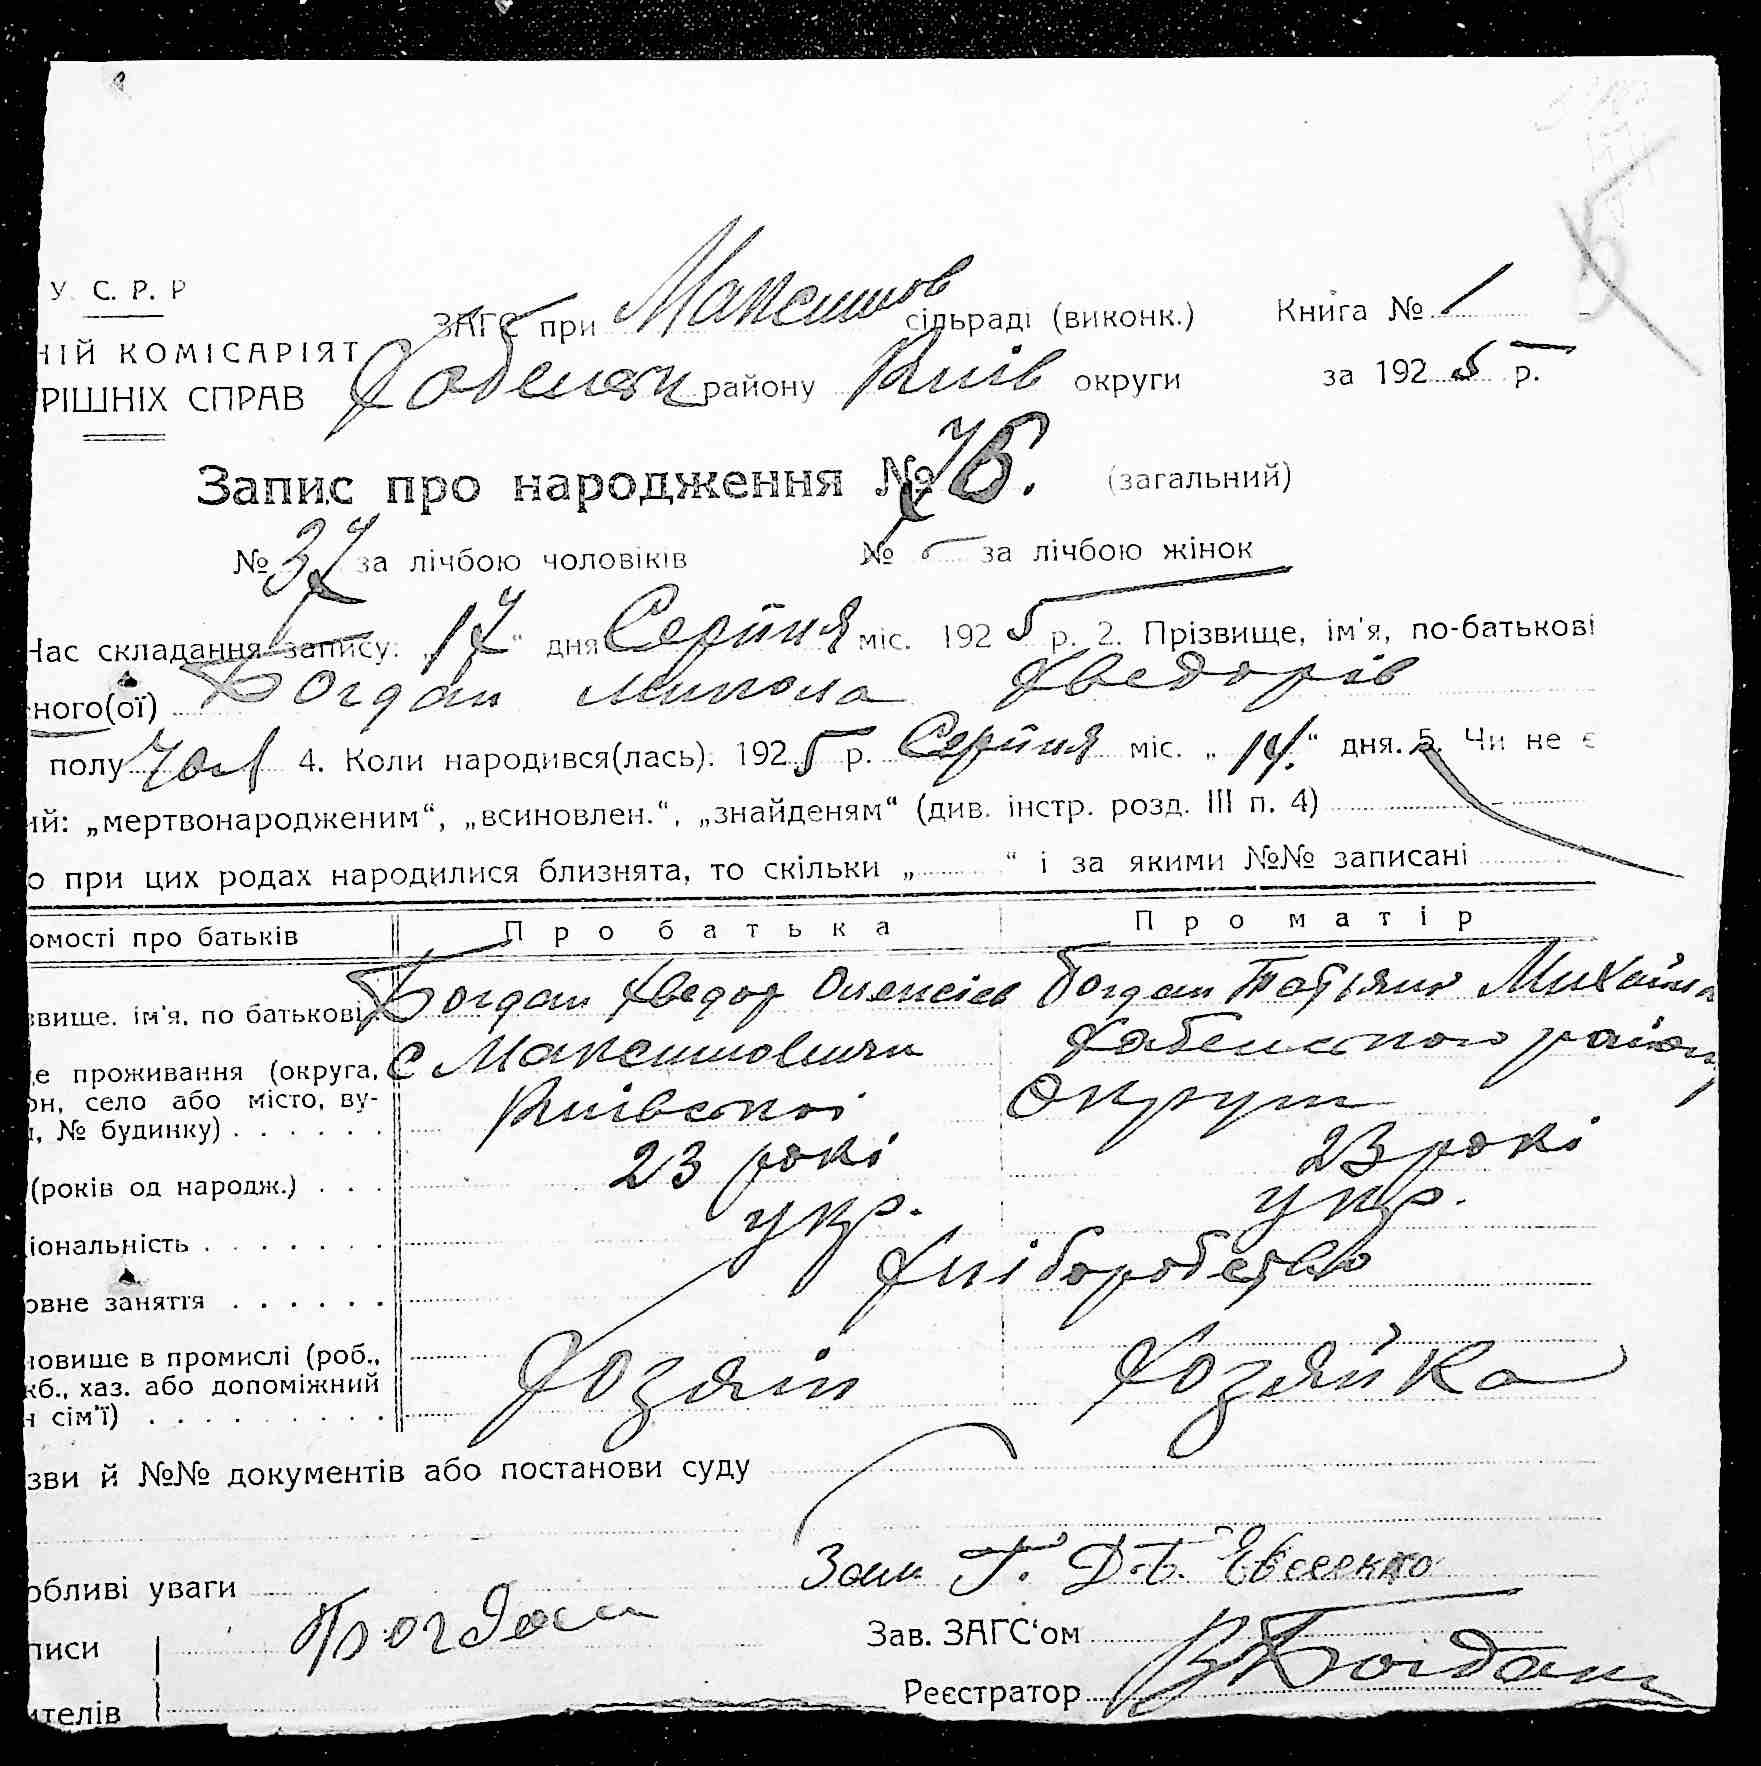 У. С. Р. Р
ЗАГС при Максимов сільраді (виконк.) Книга № 1
НІЙ КОМІСАРІЯТ
РІШНІХ СПРАВ Хабенськ району Київ округи за 1925 р.
Запис про народження № 76. (загальний)
№ 37 за лічбою чоловіків № за лічбою жінок
Час складання запису: „17“ дня Серпня міс. 1925 р. 2. Прізвище, ім'я, по-батькові
ного(ої) Богдан Микола Хведорів
полу чол 4. Коли народився(лась): 1925 р. Серпня міс. „14.“ дня. 5. Чи не є
ий: „мертвонародженим“, „всиновлен.“, „знайденям“ (див. інстр. розд. III п. 4)
о при цих родах народилися близнята, то скільки „ “ і за якими №№ записані
омості про батьків Про батька Про матір
звище. ім'я, по батькові Богдан Хведор Олексієв Богдан Татьяна Михайл
це проживання (округа, с Максимовичи Хабенського району
он, село або місто, ву-
, № будинку) . . . . . . Київської Округи
(років од народж.) . . . 23 рокі 23 рокі
іональність . . . . . . . укр. укр.
овне заняття . . . . . . Хліборобство
новище в промислі (роб.,
кб., хаз. або допоміжний Хозяін Хозяйка
н сім'ї) . . . . . . . . .
зви й №№ документів або постанови суду
обливі уваги Зам Г. Д. Б. Євсеенко
писи Богдан Зав. ЗАГС'ом
ителів Реєстратор В Богдан